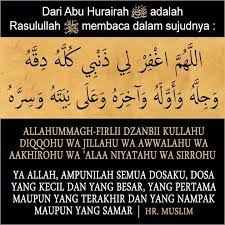 Dari Abu Hurairah ﷺ adalah
Rasulullah ﷺ membaca dalam sujudnya :
اللَّهُمَّ اغْفِرْ لِي ذَنْبِي كُلَّهُ دِقَّهُ
وَجِلَّهُ وَأَوَّلَهُ وَآخِرَهُ وَعَلَى نِيَّتَهُ وَسِرَّهُ
ALLAHUMMAGH-FIRLII DZANBII KULLAHU
DIQQOHU WA JILLAHU WA AWWALAHU WA
AAKHIROHU WA 'ALAA NIYATAHU WA SIRROHU
YA ALLAH, AMPUNILAH SEMUA DOSAKU, DOSA
YANG KECIL DAN YANG BESAR, YANG PERTAMA
MAUPUN YANG TERAKHIR DAN YANG NAMPAK
MAUPUN YANG SAMAR | HR. MUSLIM